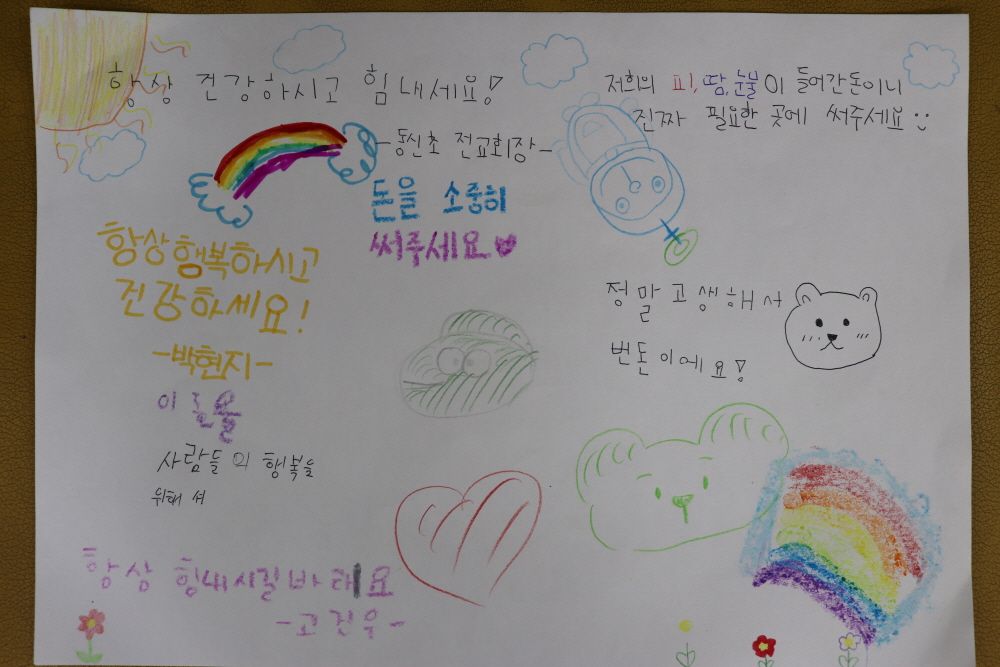 항상 건강하시고 힘내세요!
-동신초 전교회장-
저희의 피,땀,눈물이 들어간돈이니
진짜 필요한 곳에 써주세요
돈을 소중히
써주세요
항상행복하시고
건강하세요!
-박현지-
정말고생해서
번돈이에요!
이 돈을
사람들의 행복을
위해 써
항상 힘내시길바래요
-고진우-